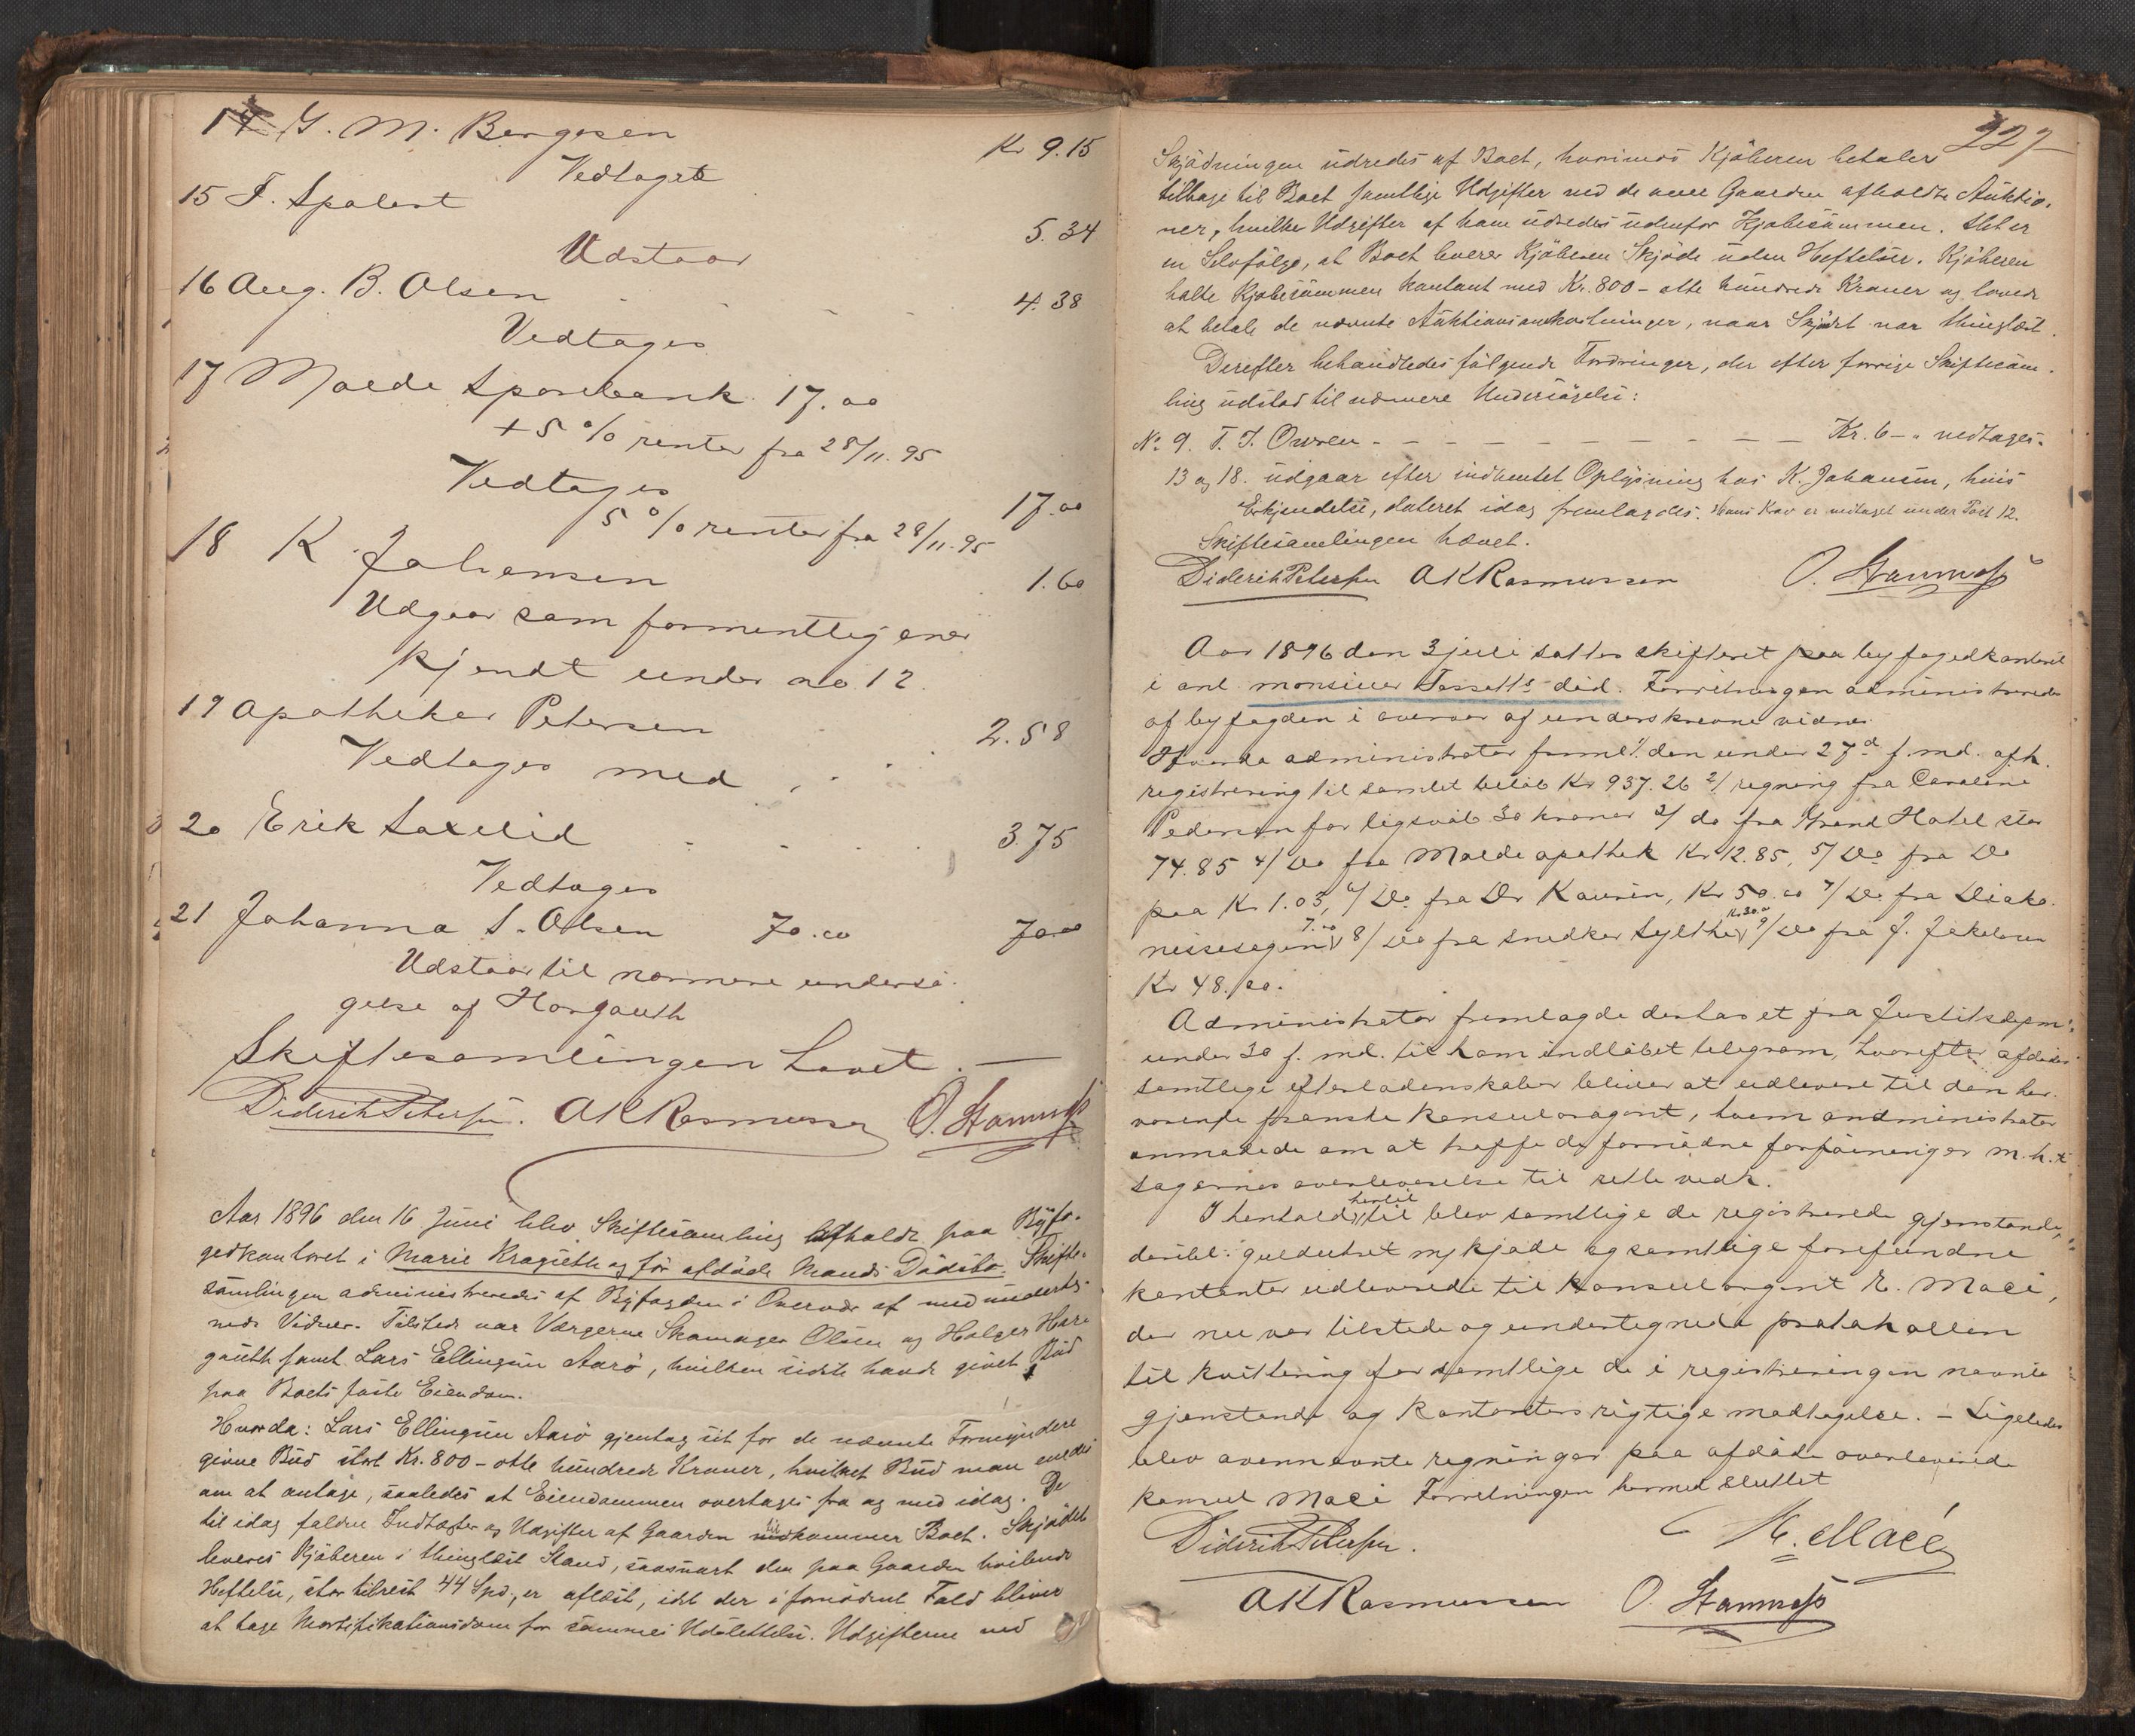 14 G. M. Bergesen Kr 9.15
Vedtages
15 T. Spolert 5.34
Udstaar
16 Aug. B. Olsen 4.38
Vedtages
17 Molde Sparebank 17.00
+ 5 % renter fra 28/11.95
Vedtages 17.00
5 % renter fra 28/11.95
18 K. Johansen 1.60
Udgaar som formentlig aner
kjendt under no 12.
19 Apotheker Petersen 2.58
Vedtages med
20 Erik Soxelid 3.75
Vedtages
21 Johanna S. Olsen 70.00 70.00
Udstaar til nærmere undersø-
gelse af Horgauth
Skiftesamlingen hævet. —
Diderik Petersen. AKRasmussen O. Stamnæss
Aar 1896 den 16 Juni blev Skiftesamling afholdt paa Byfo-
gedkontoret i Marie Kraguths og før afdøde Mands Dødsbo. Skifte-
samlingen administreredes af Byfogden i Overvær af medunderteg-
nede Vidner. Tilstede var Værgerne Skomager Olsen og Holger Hare
gauth samt Lars Ellingsen Aarø, hvilken sidste havde givet Bud
paa Boets faste Eiendom.
Hvorda: Lars Ellingsen Aarø gjentog sit for de nævnte Formyndere
givne Bud stort Kr. 800 – otte hundrede Kroner, hvilket Bud man enedes
om at antage, saaledes at Eiendommen overtages fra og med idag. De
til idag faldne Indtægter og Udgifter af Gaarden tilkommer Boet. Skjødet
leveres Kjøberen i thinglæst Stand, saasnart den paa Gaarden hvilende
Heftelse, stor tilrest 44 Spd., er aflæst, idet der i fornødent Fald bliver
at tage Mortifikationsdom for sammes Udslettelse. Udgifterne ved
227
Skjødningen udredes af Boet, hvorimod Kjøberen betaler
tilbage til Boet samtlige Udgifter ved de over Gaarden afholdte Auktio-
ner, hvilke Udgifter af ham udredes udenfor Kjøbesummen. Det er
en Selvfølge, at Boet leverer Kjøberen Skjøde uden Heftelser. Kjøberen
talte Kjøbesummen kontant med Kr. 800 – otte hundrede Kroner og lovede
at betale de nævnte Auktionsomkostninger, naar Skjødet var thinglæst.
Derefter behandledes følgende Fordringer, der efter forrige Skiftesam-
ling udstod til nærmere Undersøgelse:
No 9. T. J. Owren – – – – – – – – – Kr. 6 – " vedtages.
13 og 18. udgaar efter indhentet Oplysning hos K. Johansen, hvis
Erkjendelse, dateret idag fremlagdes. Hans Krav er vedtaget under Post 12.
Skiftesamlingen hævet.
Diderik Petersen AKRasmussen O. Stamnæss
Aar 1896 den 3 juli sattes skifteret paa byfogedkontoret
i anl. monsieur Tassetts død. Forretningen administreredes
af byfogden i overvær af underskrevne vidner.
Hvorda administrator freml. 1/ den under 27d f. md. afh.
registrering til samlet beløb Kr 937.26 2/ regning fra Caroline
Pedersen for ligsvøb 30 kroner 3/ do fra Grand Hotel stor
74.85 4/ Do fra Molde apothek Kr 12.85, 5/ Do fra Do
paa Kr 1.03, 6/ Do fra Dr Kaurin, Kr 50.00 7/ Do fra Diako-
nissesøgen 7.00 8/ Do fra snedker Sylthe Kr 30.00 9/ Do fra J. Jakobsen
Kr 48.00.
Administrator fremlagde derhos et fra Justitsdepm.
under 30 f. md. til ham indløbet telegram, hvorefter afdødes
samtlige efterladenskaber bliver at udlevere til den her-
værende franske konsularagent, hvem administrator
anmodede om at træffe de fornødne forføininger m. h. t.
sagernes overleverelse til rette vedk.
I henhold hertil blev samtlige de registrerede gjenstande,
deribl. gulduhret m/ kjæde og samtlige forefundne
kontanter udleverede til Konsularagent H. Macé,
der nu var tilstede og undertegnede protokollen
til kvittering for samtlige de i registreringen nævnte
gjenstande og kontanters rigtige modtagelse. – Ligeledes
blev ovennævnte regninger paa afdøde overleverede
konsul Macé. Forretningen hermed sluttet
Diderik Petersen. H. Macé
AKRasmussen O. Stamnæss